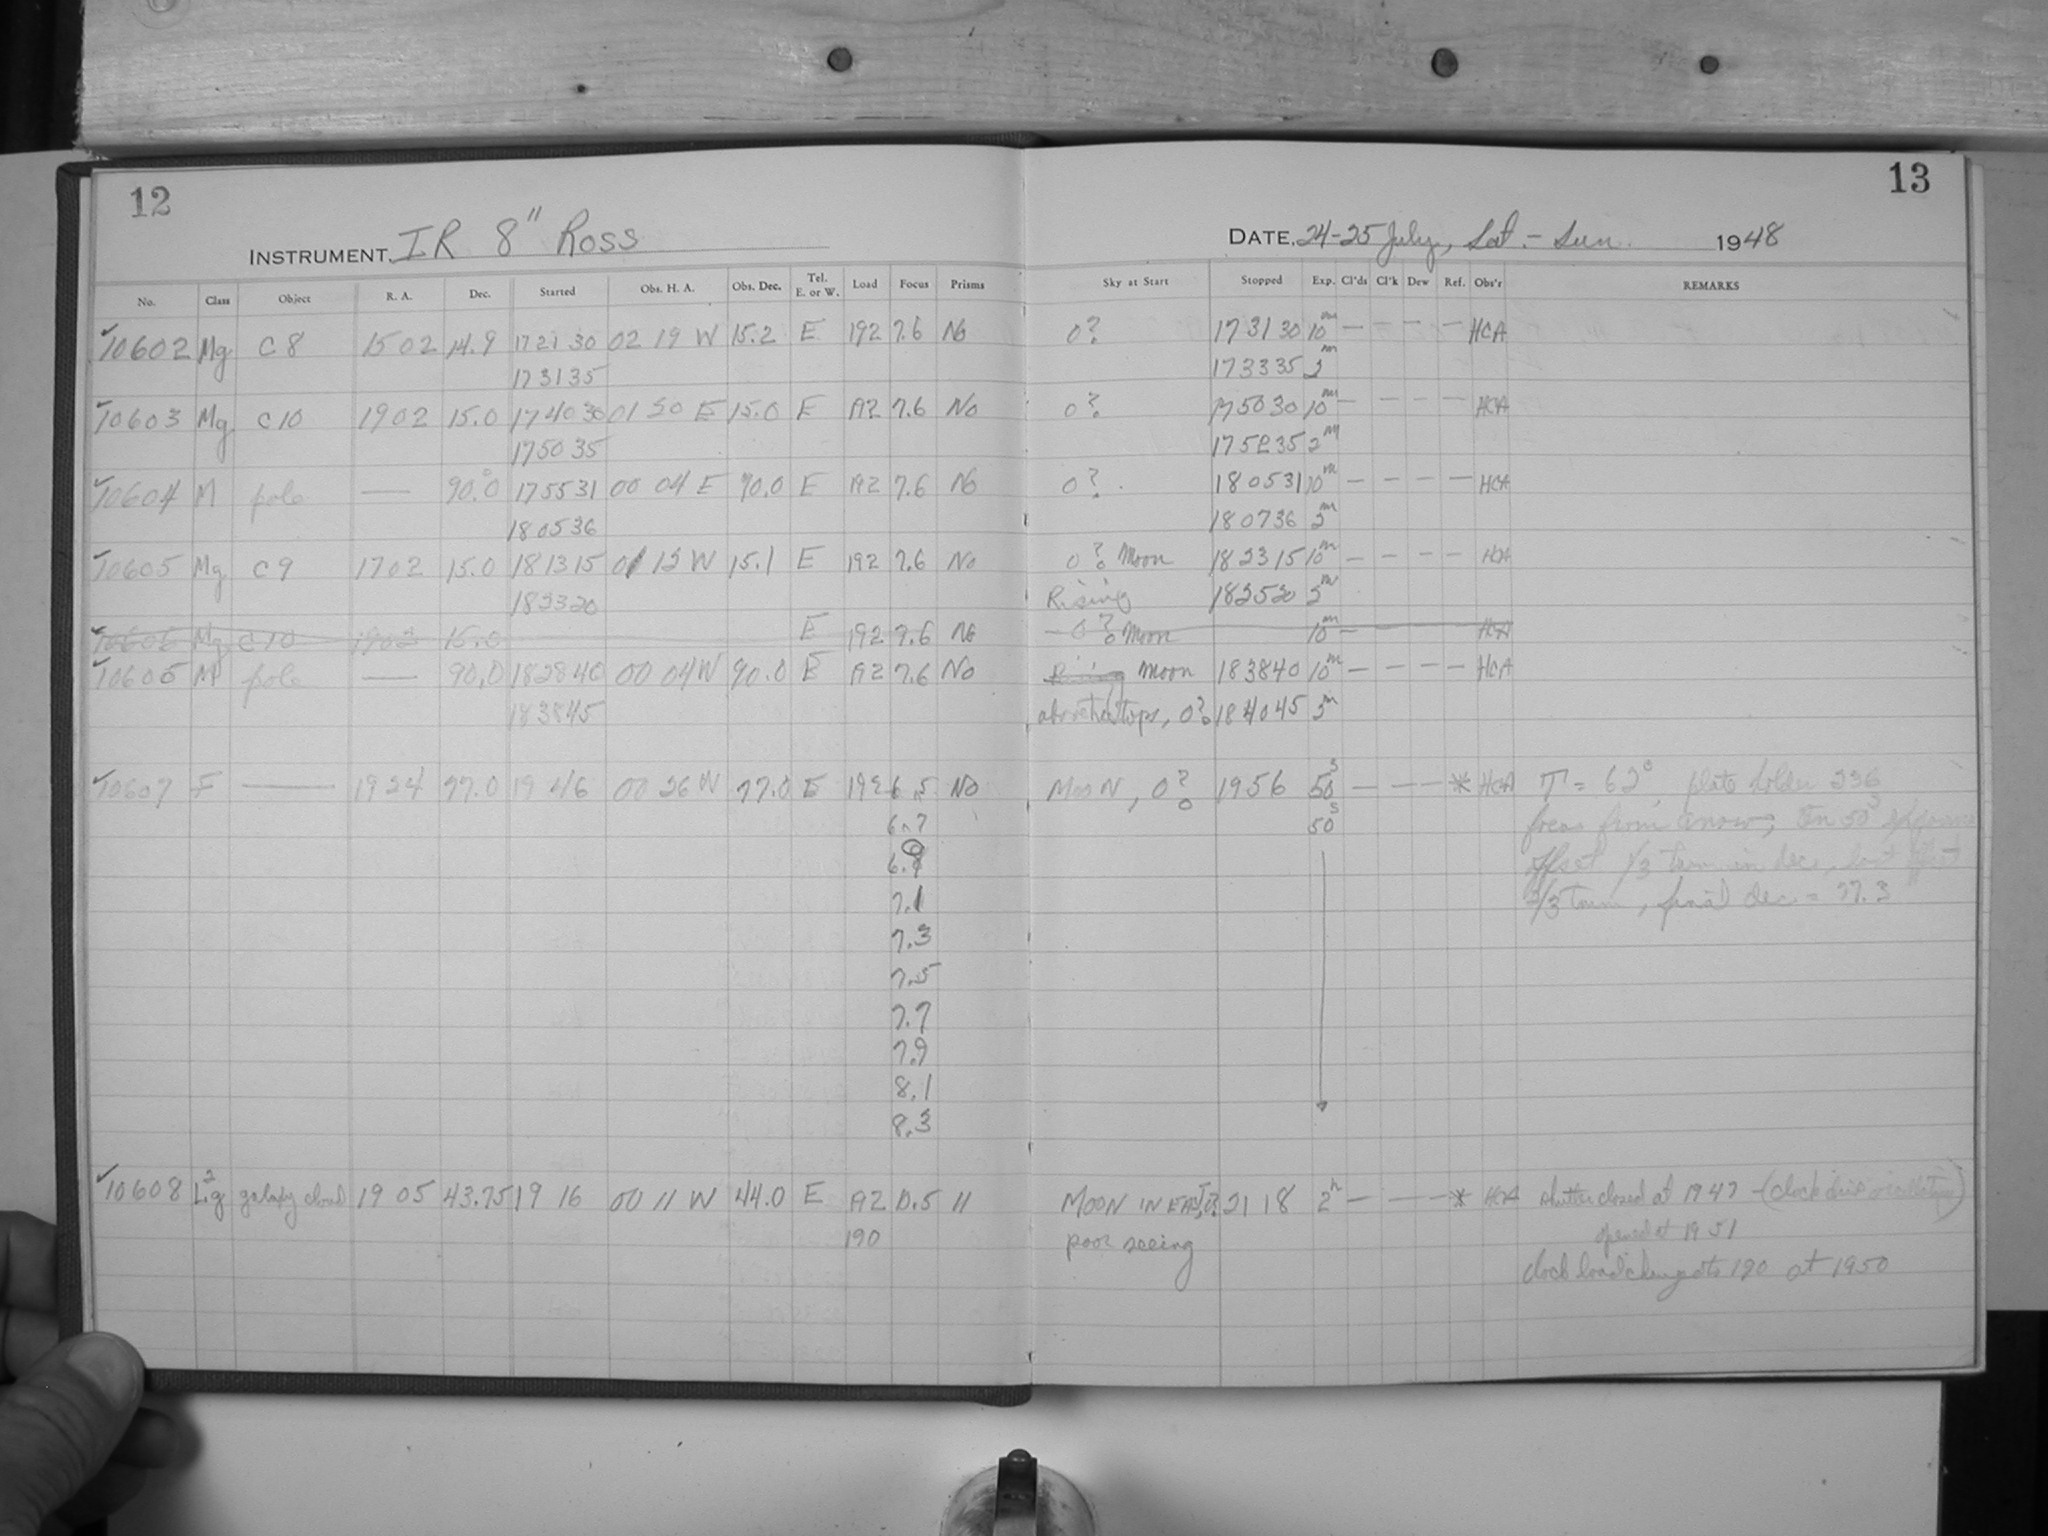 12
INSTRUMENT IR 8" Ross
No. Class Object R. A. Dec. Started Obs. H. A. Obs. Dec. Tel. E. or W. Load Focus Prisms
10602 Mg C8 1502 14.9 172130 02 19 W 15.2 E 192 7.6 No
173135
10603 Mg C10 1902 15.0 174030 01 50 E 15.0 E 192 7.6 No
175035
10604 M pole — 90.0 175531 00 04 E 90.0 E 192 7.6 No
180536
10605 Mg C9 1702 15.0 181315 01 12 W 15.1 E 192 7.6 No
182320
Mg C10 1902 15.0 E 192 7.6 No
M pole — 90.0 182840 00 04 W 90.0 E 192 7.6 No
183845
10607 F — 1924 77.0 19 46 00 26 W 77.0 E 192 6.5 No
6.7
6.9
7.1
7.3
7.5
7.7
7.9
8.1
8.3
10608 galaxy cloud 19 05 43.75 19 16 00 11 W 44.0 E 192 "
190
13
DATE 24-25 July, Sat. - Sun. 1948
Sky at Start Stopped Exp. Cl'ds Cl'k Dew Ref. Obs'r REMARKS
0? 173130 10m — — — — HCA
173335 2m
0? 175030 10m — — — — HCA
175235 2m
0? 180531 10m — — — — HCA
180736 2m
0? Moon 182315 10m — — — — HCA
Rising 182520 2m
0? Moon 10m — HCA
Moon 183840 10m — — — — HCA
above treetops, 0? 184045 2m
MOON, 0? 1956 50s — — — * HCA T = 62°, plate holder 236
50s focus from
offset 1/3 turn in dec., last offset
2/3 turn, final dec. = 77.3
MOON IN EAST, 0? 21 18 2h — — — * HCA shutter closed at 1947
poor seeing opened at 1951
clock load changed to 190 at 1950